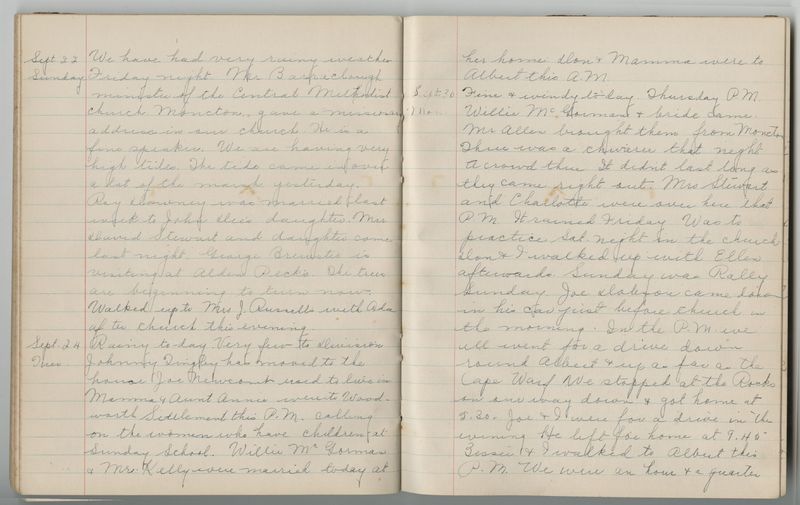 Sept 22 We have had very rainy weather
Sunday Friday night Mr Barraclough
minister of the Central Methodist
church Moncton, gave a missionary
address in our church. He is a
fine speaker. We are having very
high tides. The tide came in over
a lot of the marsh yesterday.
Ray Downey was married last
week to John daughter. Mrs
David Stewart and daughter came
last night. George Brewster is
visiting at Alden Peck's. The trees
are beginning to turn now.
Walked up to Mrs J. Russells with Ada
after church this evening.
Sept. 24 Rainy to-day Very few to Division
Tues Johnny Tingley has moved to the
house Joe Newcomb used to live in
Mamma & Aunt Annie were to Wood-
worth Settlement this P.M. calling
on the women who have children at
Sunday School. Willie Mc Gorman
& Mrs. Kelly were married today at
her home. Don & Mamma were to
Albert this A.M.
Sept 30 Fine & windy to-day. Thursday P.M.
Mon Willie Mc Gorman & bride came.
Mr Allen brought them from Moncton
There was a that night
A crowd there It didn't last long as
they came right out. Mrs Stewart
and Charlotte were over here that
P.M. It rained Friday Was to
practice Sat. night in the church
Don & I walked up with Ellen
afterwards. Sunday was Rally
Sunday. Joe came down
in his car just before church in
the morning. In the P.M. we
all went for a drive down
round Albert & up as far as the
Cape Ward We stopped at the Rocks
on our way down & got home at
5.30. Joe & I were for a drive in the
evening He left for home at 9.45
Bessie & I walked to Albert this
P.M. We were an hour & a quarter